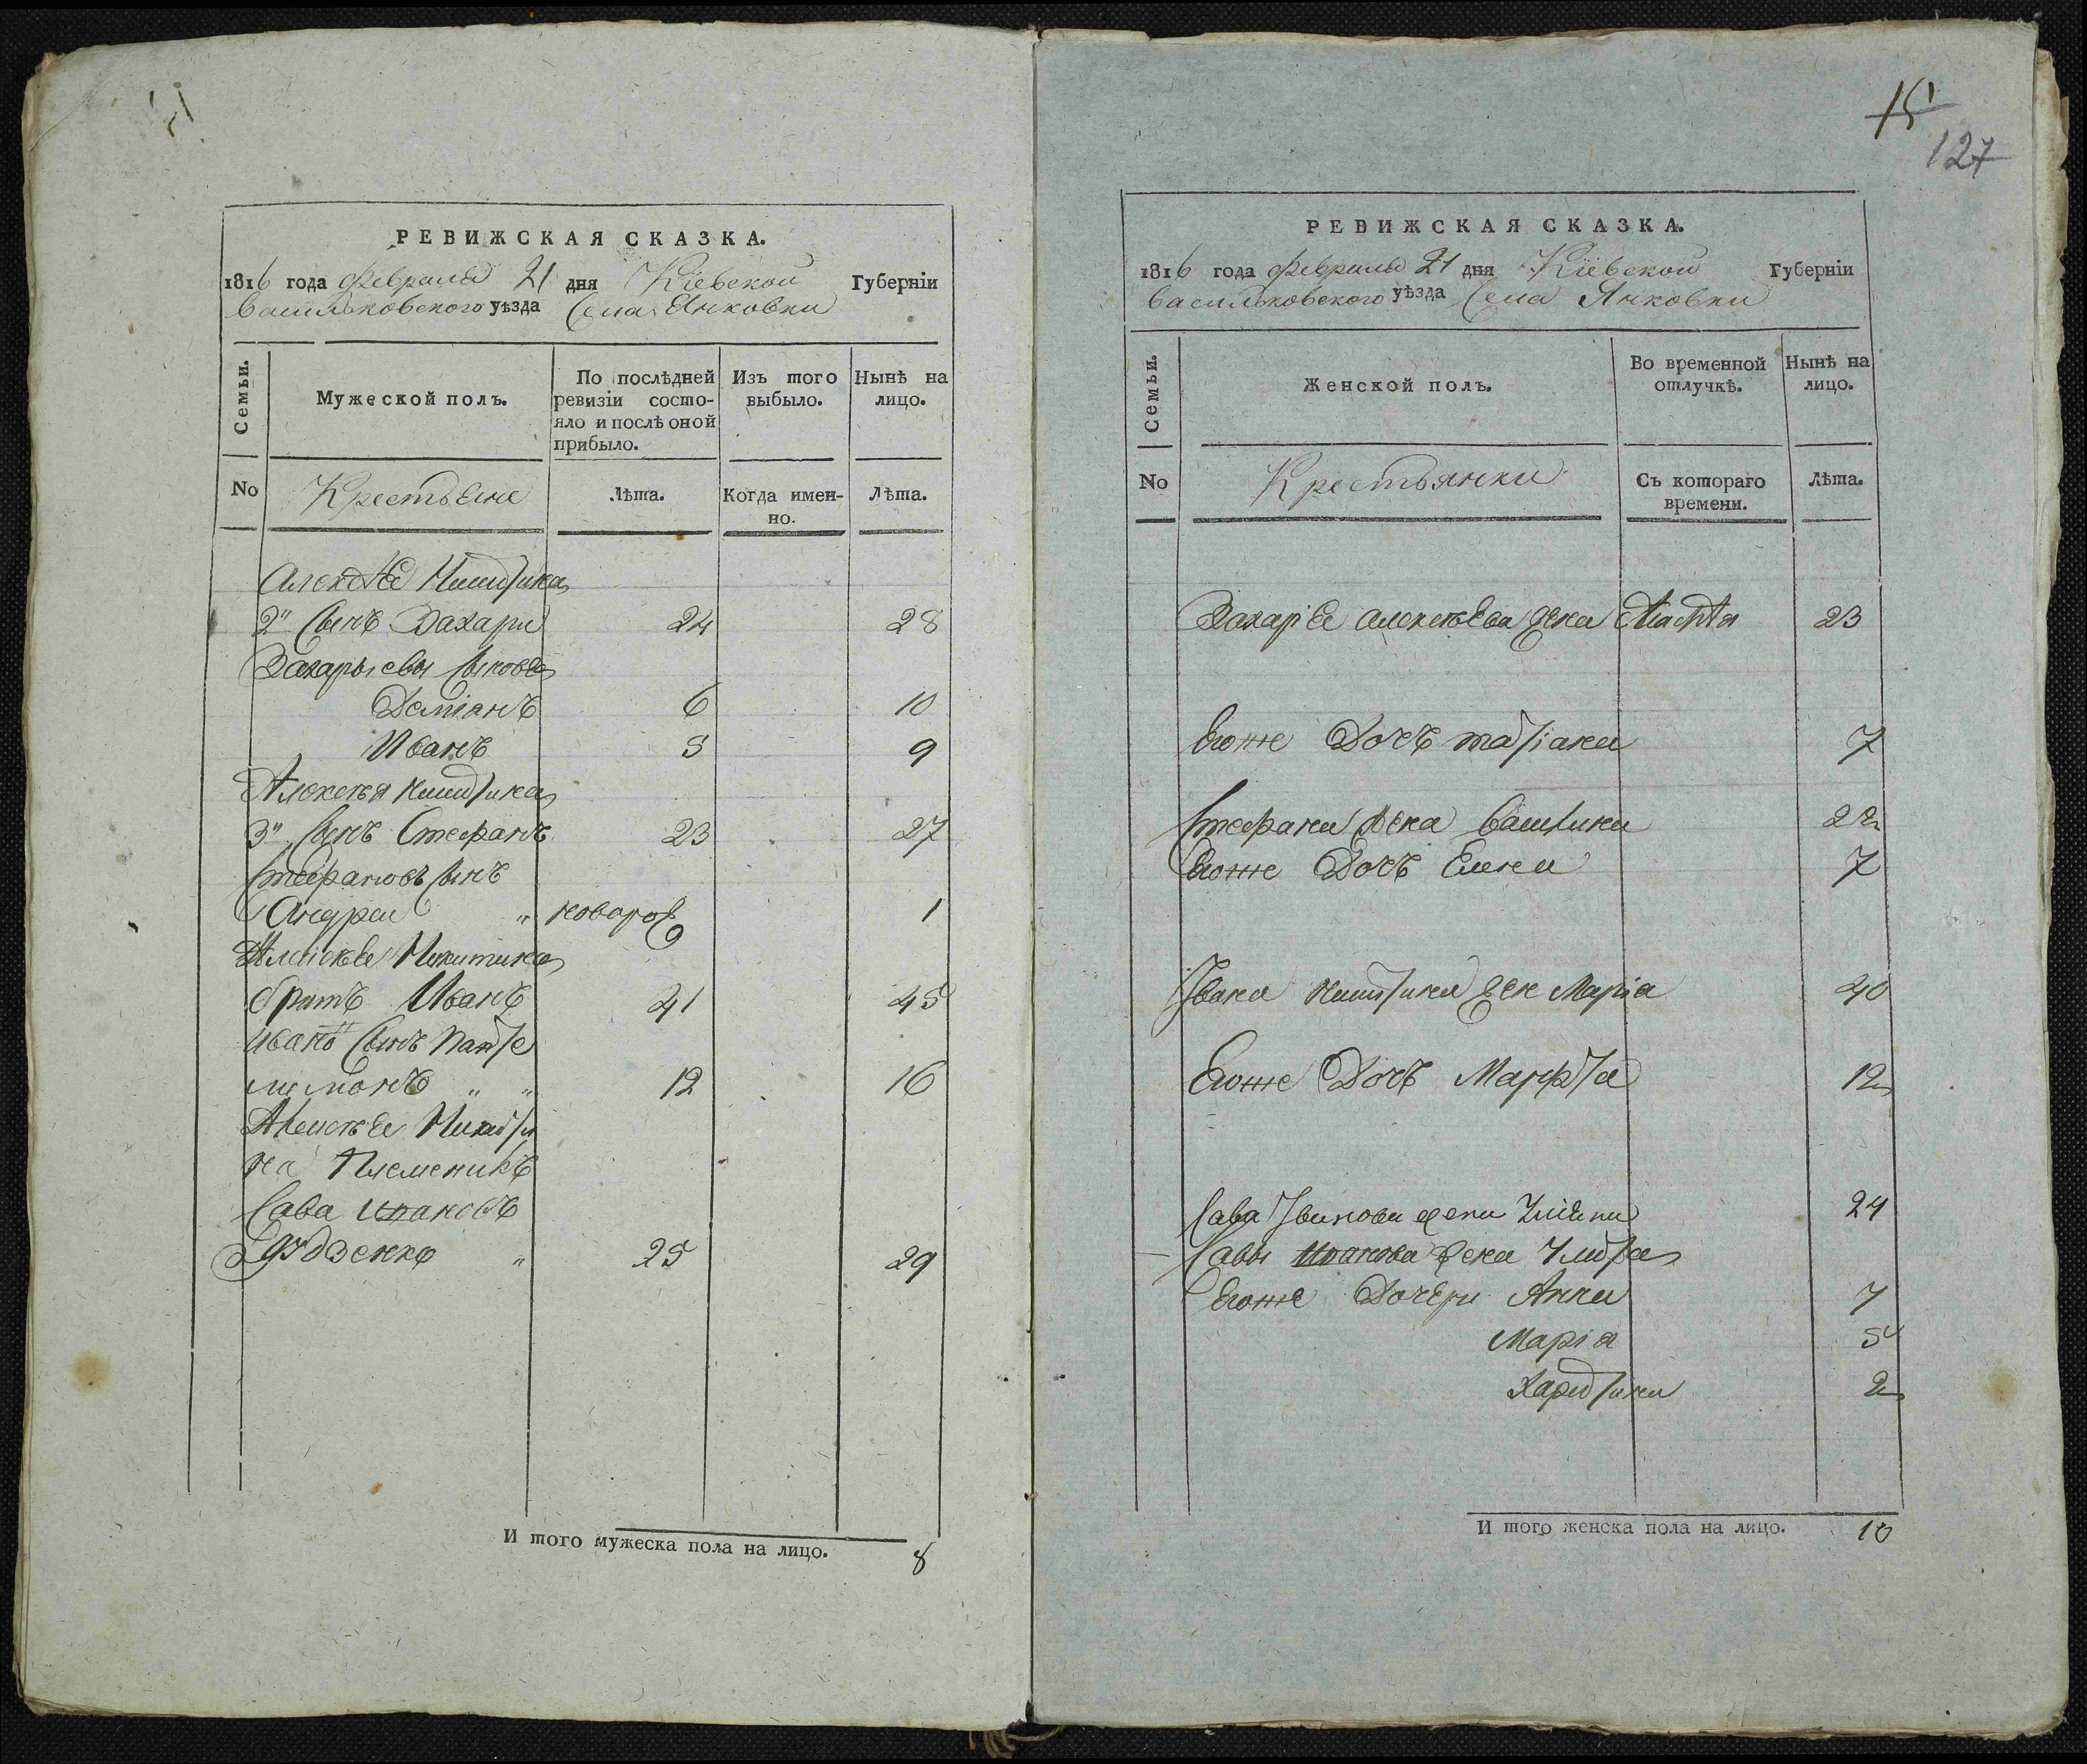 РЕВИЖСКАЯ СКАЗКА.
1816 года февраля 21 дня Кіевской Губерніи
Васильковского уѣзда Села Янковки
Семьи.
Мужеской полъ.
По послѣдней ревизіи состо-
яло и послѣ оной
прибыло.
Изъ того
выбыло.
Нынѣ на
лицо.
No
Крестьяне
Лѣта.
Когда имен-
но.
Лѣта.
2й Сынъ Захари 24 28
Захарьевы Сыновья
Деміанъ 6 10
Иванъ 5 9
3й Сынъ Стефанъ 23 27
Стефановъ Сынъ
Андреи новорож 1
Никитина
братъ Иванъ 41 45
Сынъ Панте
лимонъ 12 16
на Племеникъ
Сава Ивановъ
25 29
И того мужеска пола на лицо. 8
15
127
РЕВИЖСКАЯ СКАЗКА.
1816 года февраля 21 дня Кіевской Губерніи
Васильковского уѣзда Села Янковки
Семьи.
Женской полъ.
Во временной
отлучкѣ.
Нынѣ на
лицо.
No
Крестьянки
Съ котораго
времени.
Лѣта.
Захаріе Алексѣева жена 23
Егоже Дочъ татіана 7
Стефана жена 22
Егоже Дочъ Елена 7
Івана Никитина жен Марія 40
Егоже Дочъ Марфта 12
Сава Іванова жена 24
Саввы Иванова жена
Егоже Дочери Анна 7
Марія 5
Харитина 2
И того женска пола на лицо. 10